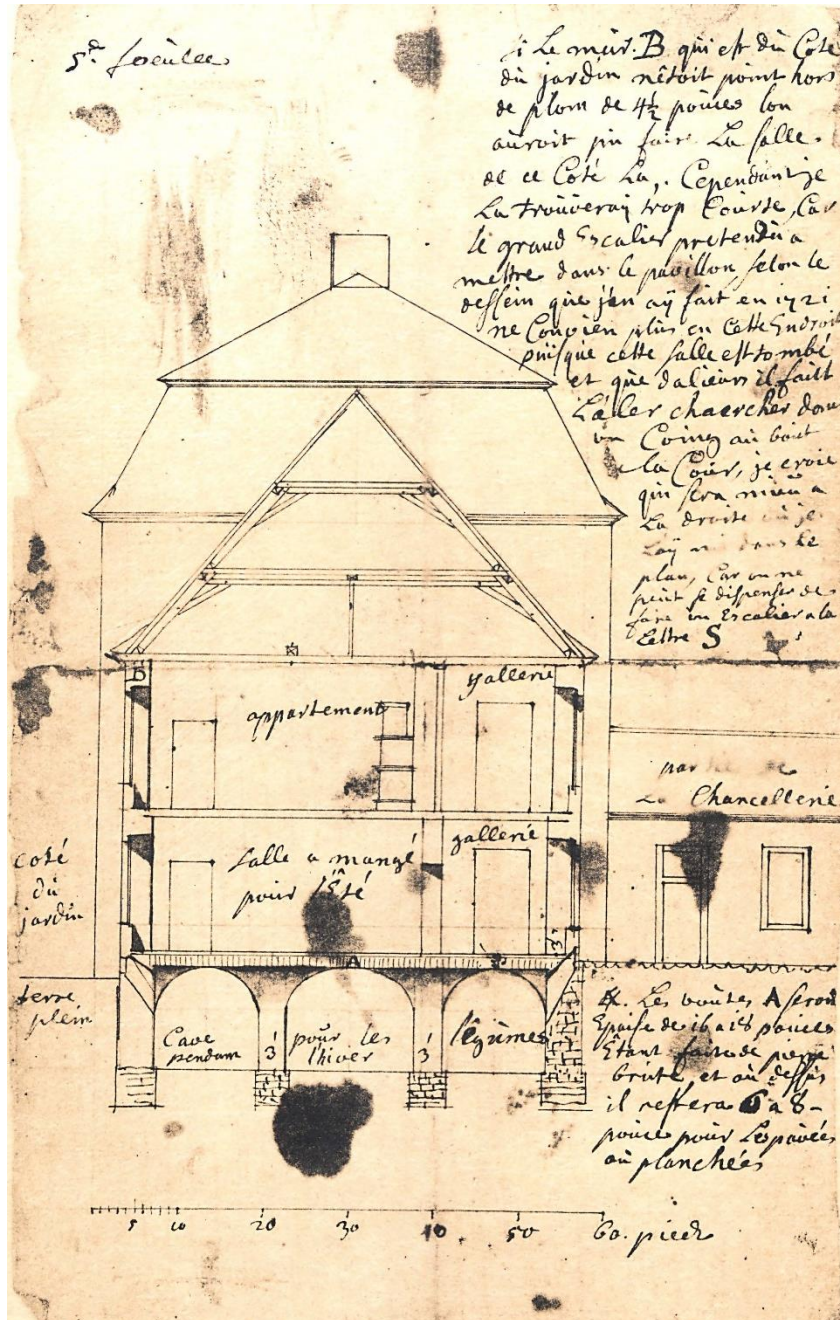 5.e feüilles
si Le mür. B qui est dü Coté
dü jardin nétoit point hors
de plom de 4½ poüces lon
aüroit pü faire La salle
de ce Coté La,. Cependant je
La troüveray trop Coürte, Car
le grand Escalier pretendü a
mettre dans le pavillon selon le
dessein que jen aÿ fait en 1721
ne Convien plüs en Cette Endroit
püisque cette salle est tombé
et que dalieürs il faüt
Laler chaercher dans
ün Coing aü boüt
la Coür, je croie
qüi sera mieü a
La droite oü je
Laÿ mi dans le
plan, Car on ne
peüt se dispenser de
faire ün Escalier a la
Lettre S
B
appartement
gallerie
partie de
La Chancellerie
salle a mangé
poür l'Été
gallerie
coté
dü
jardin
3
A
terre
plein
Cave
pendant
3
poür les
l'hiver
3
légümes
A. Les voütes A seron
Epaise de 16 a 18 poüces
Étant faite de pierre
brüte et aü dessüs
il restera 6 a 8-
poüce poür Les pavées
oü planchées
5 10 20 30 40 50 60. pieds